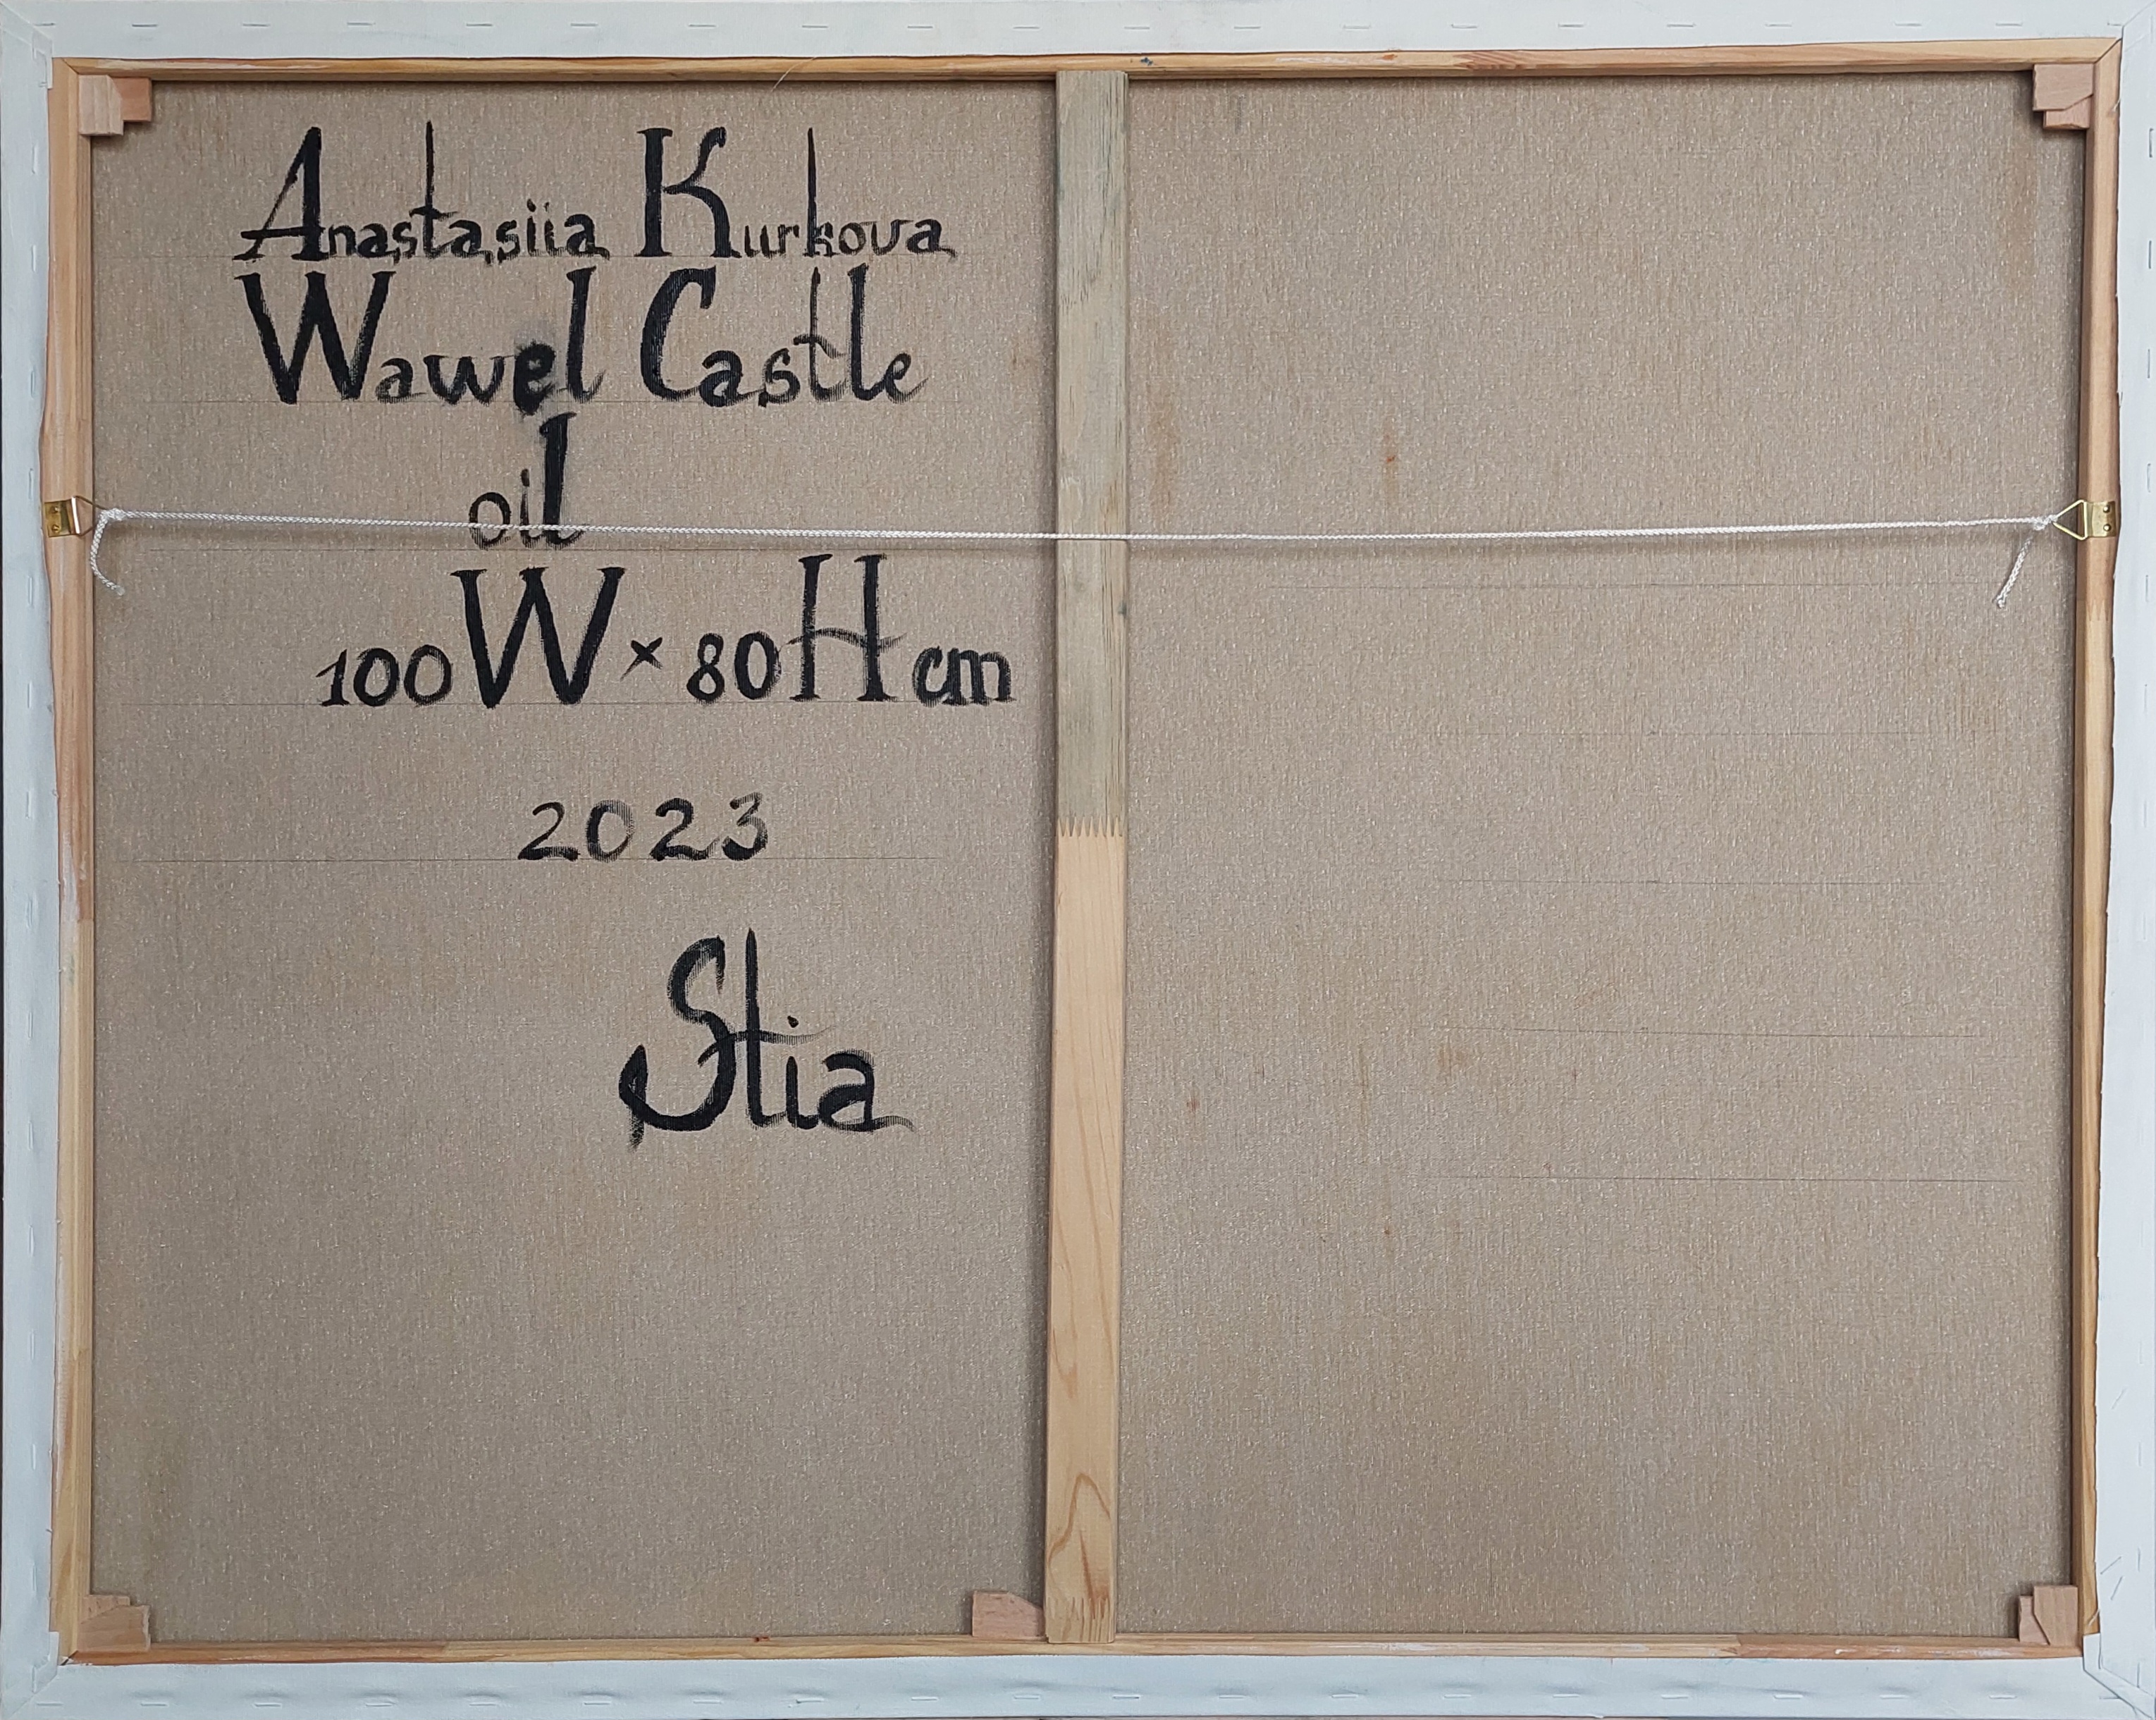 Anastasiia Kurkova
Wawel Castle
oil
100W×80H cm
2023
Stia